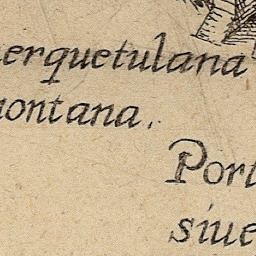 erquetulana
ontana.
Port
siue